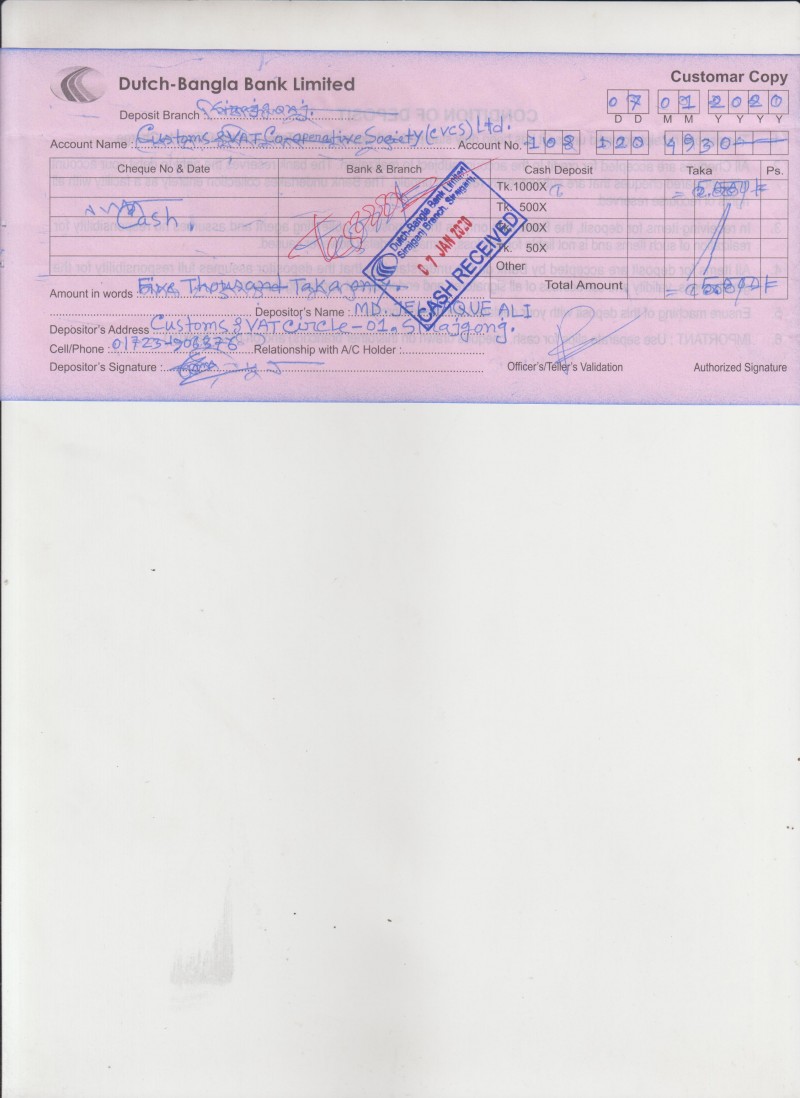 Dutch-Bangla Bank Limited
Customar Copy
Deposit Branch : Sirajganj.
07 01 2020
D D M M Y Y Y Y
Account Name : Customs & VAT Co-operative Society (CVCS) Ltd. Account No. 108 120 4930
Cheque No & Date Bank & Branch Cash Deposit Taka Ps.
Tk.1000X
Cash. Tk. 500X
Tk. 100X
Tk. 50X
Other
Total Amount
Dutch-Bangla Bank Limited
Sirajganj Branch, Sirajganj
07 JAN 2020
CASH RECEIVED
Amount in words : Five Thousand Taka only.
Depositor's Name : MD. ALI
Depositor's Address Customs & VAT Circle-01, Sirajgong.
Cell/Phone : Relationship with A/C Holder :
Depositor's Signature : Officer's/Teller's Validation Authorized Signature